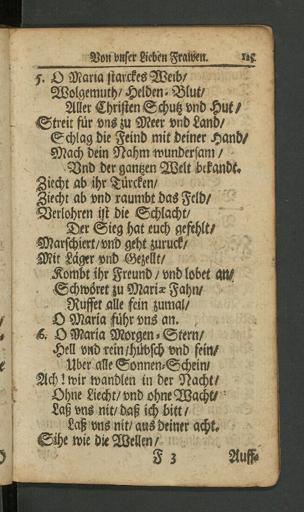 Von vnser Lieben Frawen. 125
5. O Maria starckes Weib/
Wolgemuth/ Helden-Blut/
Aller Christen Schutz vnd Hut/
Streit für vns zu Meer vnd Land/
Schlag die Feind mit deiner Hand/
Mach dein Nahm wundersam/
Vnd der gantzen Welt bekandt.
Ziecht ab ihr Türcken/
Ziecht ab vnd raumbt das Feld/
Verlohren ist die Schlacht/
Der Sieg hat euch gefehlt/
Marschiert/ vnd geht zuruck/
Mit Läger vnd Gezellt/
Kombt ihr Freund/ vnd lobet an/
Schwöret zu Mariæ Fahn/
Ruffet alle sein zumal/
O Maria führ vns an.
6. O Maria Morgen-Stern/
Hell vnd rein/ hübsch vnd fein/
Uber alle Sonnen-Schein/
Ach! wir wandlen in der Nacht/
Ohne Liecht/ vnd ohne Wacht/
Laß vns nit/ daß ich bitt/
Laß vns nit/ aus deiner acht.
Sihe wie die Wellen/
F 3 Auff-